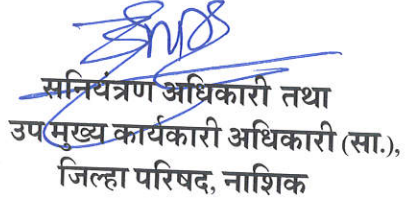 सनियंत्रण अधिकारी तथा
उप मुख्य कार्यकारी अधिकारी (सा.),
जिल्हा परिषद, नाशिक